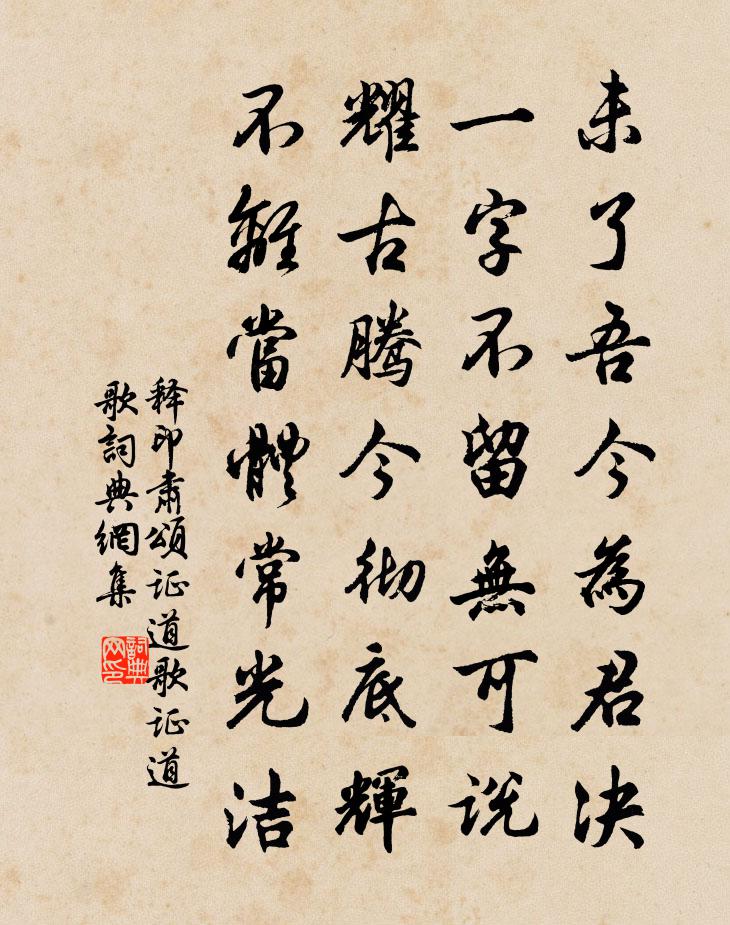 未了吾今為君决
一字不留無可説
耀古騰今彻底輝
不離當體常光洁
释印肃頌证道歌证道
歌詞典網集
詞典
网印